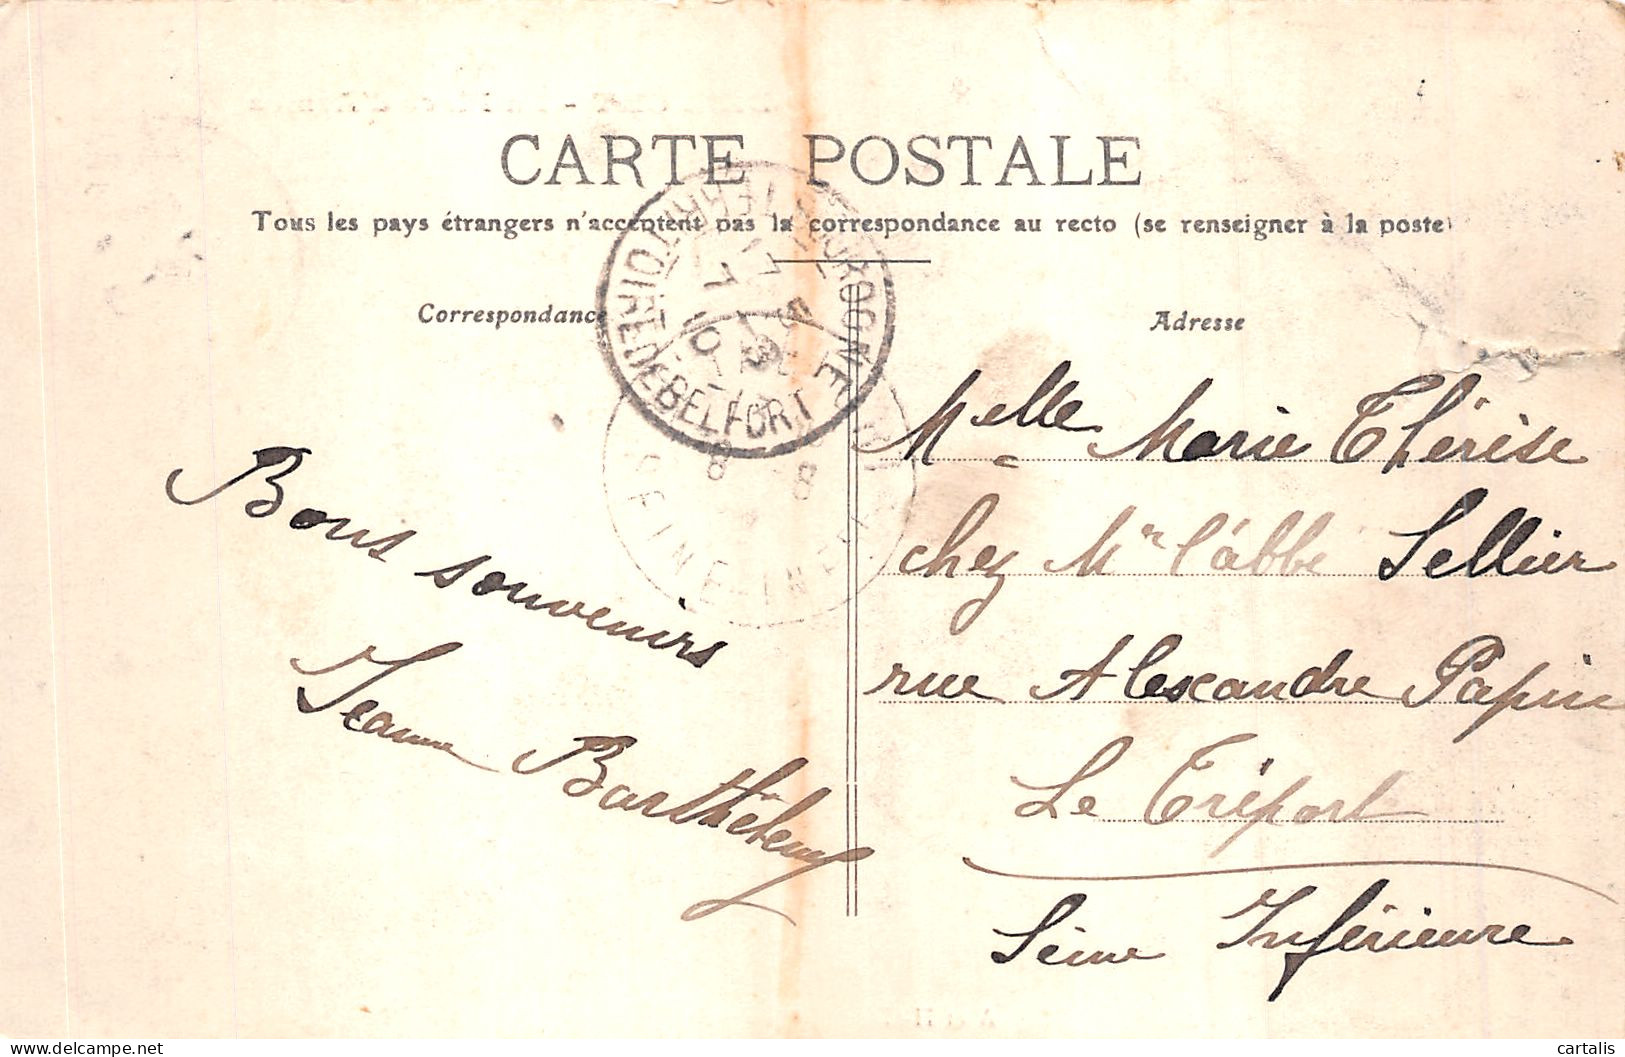 CARTE POSTALE
Tous les pays étrangers n'acceptent pas la correspondance au recto (se renseigner à la poste)
Correspondance
Adresse
TOIRE DE BELFORT
SEINE-INF
Bons souvenirs
Jeanne Barthélemy
Melle Marie Thérèse
chez Mr l'abbé Sellier
rue Alexandre Papin
Le Tréport
Seine Inférieure
delcampe.net
cartalis